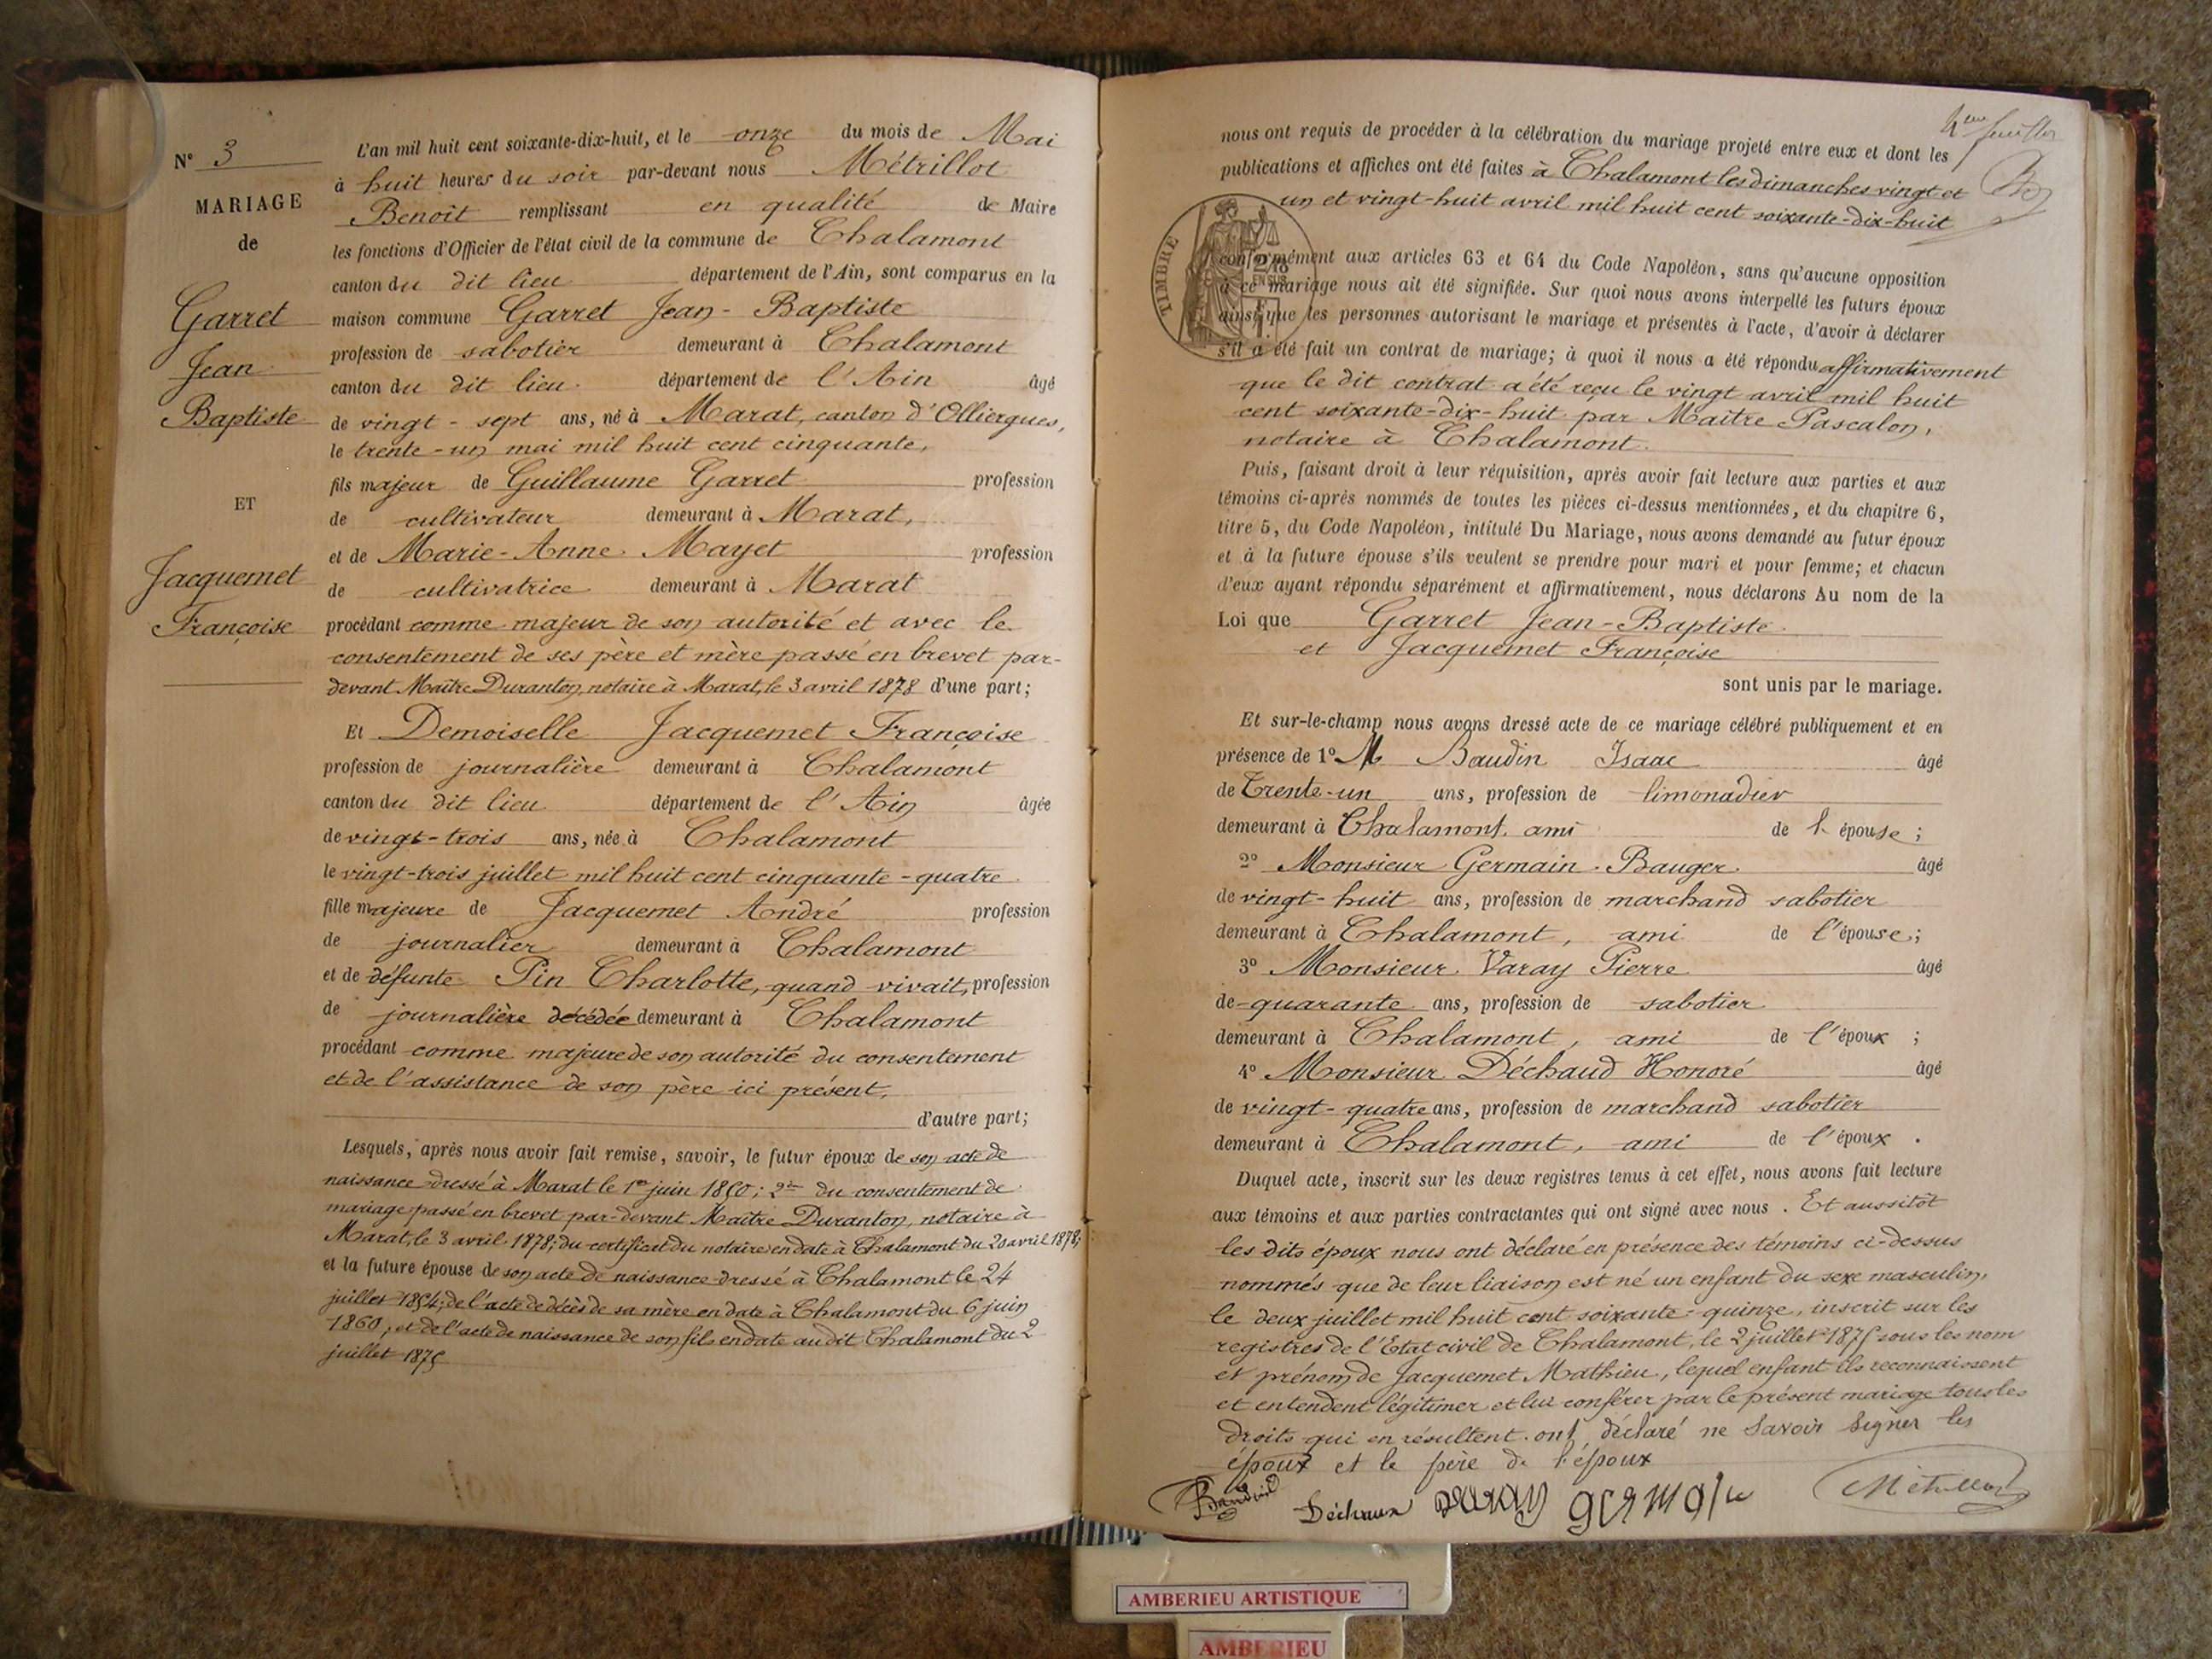 N° 3
MARIAGE
de
Garret
Jean
Baptiste
ET
Jacquemet
Françoise
L'an mil huit cent soixante-dix-huit, et le onze du mois de Mai
à huit heures du soir par-devant nous Métrillot
Benoît remplissant en qualité de Maire
les fonctions d'Officier de l'état civil de la commune de Chalamont
canton du dit lieu département de l'Ain, sont comparus en la
maison commune Garret Jean-Baptiste
profession de sabotier demeurant à Chalamont
canton du dit lieu. département de l'Ain âgé
de vingt-sept ans, né à Marat, canton d'Olliergues,
le trente-un mai mil huit cent cinquante,
fils majeur de Guillaume Garret profession
de cultivateur demeurant à Marat,
et de Marie-Anne Mayet profession
de cultivatrice demeurant à Marat
procédant comme majeur de son autorité et avec le
consentement de ses père et mère passé en brevet par-
devant Maître Duranton, notaire à Marat, le 3 avril 1878 d'une part;
Et Demoiselle Jacquemet Françoise
profession de journalière demeurant à Chalamont
canton du dit lieu département de l'Ain âgée
de vingt-trois ans, née à Chalamont
le vingt-trois juillet mil huit cent cinquante-quatre
fille majeure de Jacquemet André profession
de journalier demeurant à Chalamont
et de défunte Pin Charlotte, quand vivait, profession
de journalière décédée demeurant à Chalamont
procédant comme majeure de son autorité du consentement
et de l'assistance de son père ici présent,
d'autre part;
Lesquels, après nous avoir fait remise, savoir, le futur époux de son acte de
naissance dressé à Marat le 1er juin 1850; 2° du consentement de
mariage passé en brevet par-devant Maître Duranton, notaire à
Marat, le 3 avril 1878; du certificat du notaire en date à Chalamont du 20 avril 1878;
et la future épouse de son acte de naissance dressé à Chalamont le 24
juillet 1854; de l'acte de décès de sa mère en date à Chalamont du 6 juin
1860; et de l'acte de naissance de son fils en date au dit Chalamont du 2
juillet 1875
nous ont requis de procéder à la célébration du mariage projeté entre eux et dont les
publications et affiches ont été faites à Chalamont les dimanches vingt et
un et vingt-huit avril mil huit cent soixante-dix-huit
TIMBRE
EN SUS
conformément aux articles 63 et 64 du Code Napoléon, sans qu'aucune opposition
à ce mariage nous ait été signifiée. Sur quoi nous avons interpellé les futurs époux
ainsi que les personnes autorisant le mariage et présentes à l'acte, d'avoir à déclarer
s'il a été fait un contrat de mariage; à quoi il nous a été répondu affirmativement
que le dit contrat a été reçu le vingt avril mil huit
cent soixante-dix-huit par Maître Pascalon,
notaire à Chalamont.
Puis, faisant droit à leur réquisition, après avoir fait lecture aux parties et aux
témoins ci-après nommés de toutes les pièces ci-dessus mentionnées, et du chapitre 6,
titre 5, du Code Napoléon, intitulé Du Mariage, nous avons demandé au futur époux
et à la future épouse s'ils veulent se prendre pour mari et pour femme; et chacun
d'eux ayant répondu séparément et affirmativement, nous déclarons Au nom de la
Loi que Garret Jean-Baptiste
et Jacquemet Françoise
sont unis par le mariage.
Et sur-le-champ nous avons dressé acte de ce mariage célébré publiquement et en
présence de 1° M Baudin Isaac âgé
de Trente-un ans, profession de limonadier
demeurant à Chalamont, ami de l'épouse;
2° Monsieur Germain Bauger âgé
de vingt-huit ans, profession de marchand sabotier
demeurant à Chalamont, ami de l'épouse;
3° Monsieur Varay Pierre âgé
de quarante ans, profession de sabotier
demeurant à Chalamont, ami de l'époux;
4° Monsieur Déchaud Honoré âgé
de vingt-quatre ans, profession de marchand sabotier
demeurant à Chalamont, ami de l'époux.
Duquel acte, inscrit sur les deux registres tenus à cet effet, nous avons fait lecture
aux témoins et aux parties contractantes qui ont signé avec nous. Et aussitôt
les dits époux nous ont déclaré en présence des témoins ci-dessus
nommés que de leur liaison est né un enfant du sexe masculin,
le deux juillet mil huit cent soixante-quinze, inscrit sur les
registres de l'Etat civil de Chalamont, le 2 juillet 1875 sous les nom
et prénom de Jacquemet Mathieu, lequel enfant ils reconnaissent
et entendent légitimer et lui conférer par le présent mariage tous les
droits qui en résultent. ont déclaré ne savoir signer les
époux et le père de l'époux
Baudin Déchaux varay germain Métrillot
AMBERIEU ARTISTIQUE
AMBERIEU